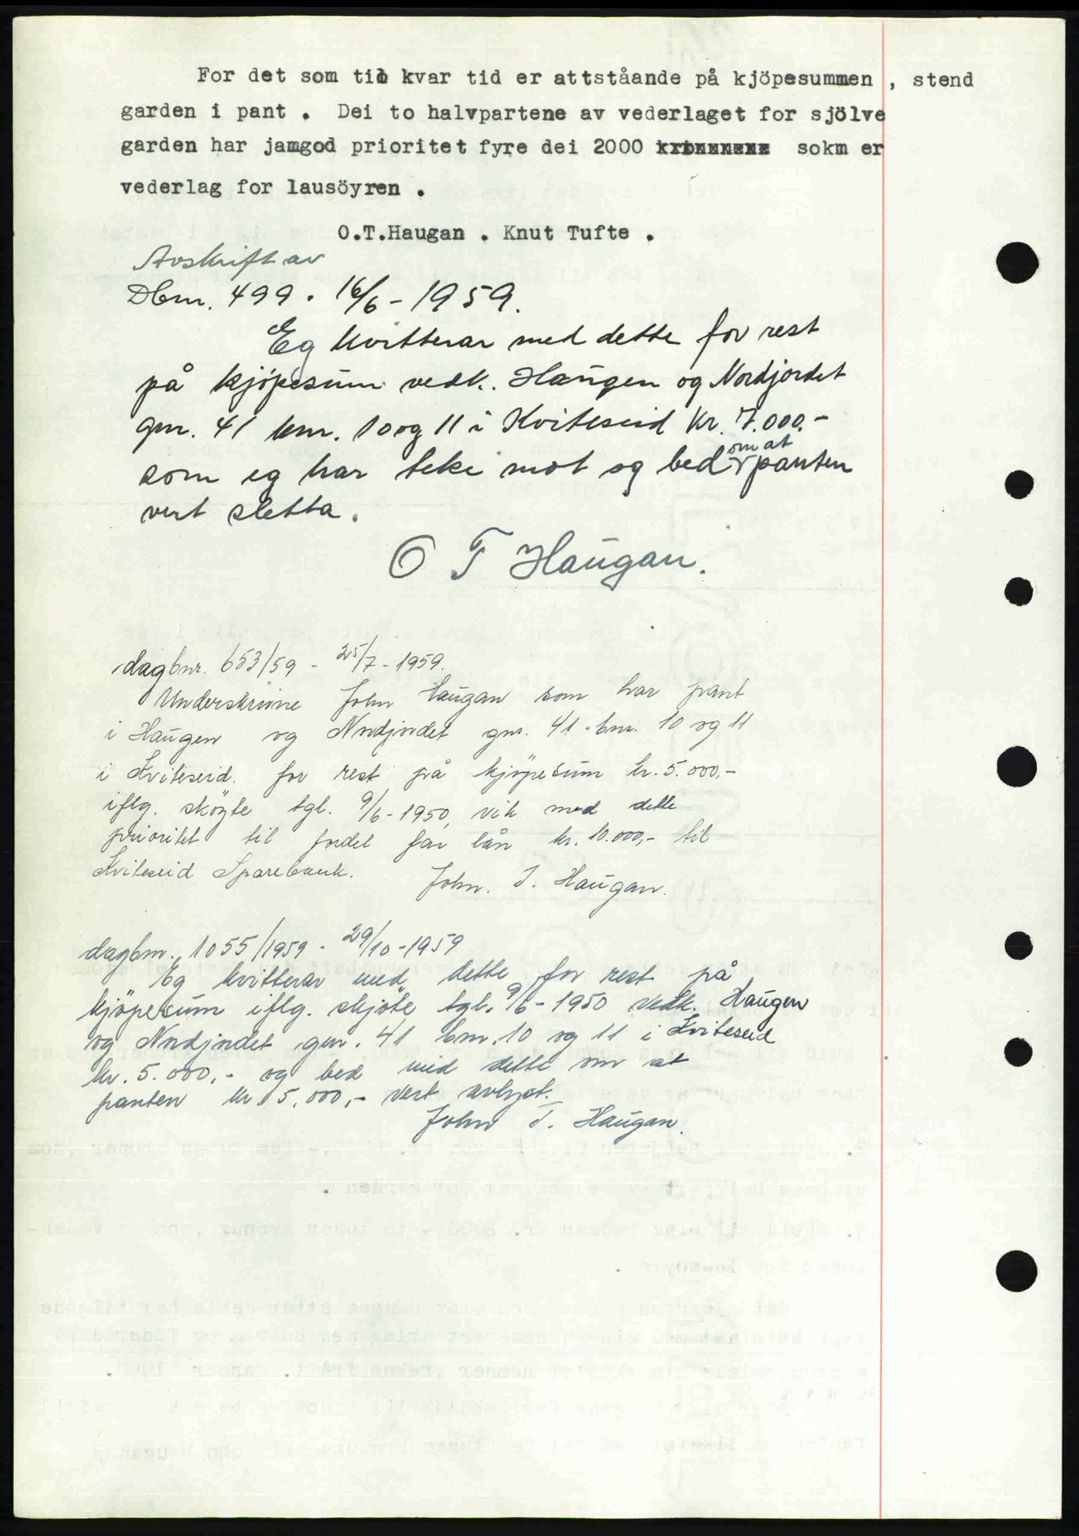 For det som til kvar tid er attståande på kjöpesummen , stend
garden i pant . Dei to halvpartene av vederlaget for sjölve
garden har jamgod prioritet fyre dei 2000 sokm er
vederlag for lausöyren .
O.T.Haugan . Knut Tufte .
Avskrift av
Dbnr. 499 . 16/6 - 1959.
Eg kvitterar med dette for rest
på kjöpesum vedk. Haugen og Nordjordet
gnr. 41 bnr. 10 og 11 i Kviteseid kr. 7.000.-
som eg har teke mot og bed om at panten
vert sletta.
O T Haugan.
dagbnr. 653/59 - 25/7 - 1959.
Underskrivne John Haugan som har pant
i Haugen og Nordjordet gnr. 41 - bnr. 10 og 11
i Kviteseid for rest på kjöpesum kr. 5.000,-
iflg. sköyte tgl. 9/6 - 1950, vik med dette
prioritet til fordel for lån kr. 10.000,- til
Kviteseid Sparebank. John. T. Haugan.
dagbnr. 1055/1959 - 29/10 - 1959
Eg kvitterar med dette for rest på
kjöpesum iflg. skjöte tgl. 9/6 - 1950 vedk. Haugen
og Nordjordet gnr. 41 bnr. 10 og 11 i Kviteseid
kr. 5.000,- og bed med dette om at
panten kr. 5.000,- vert avlyst.
John T. Haugan.